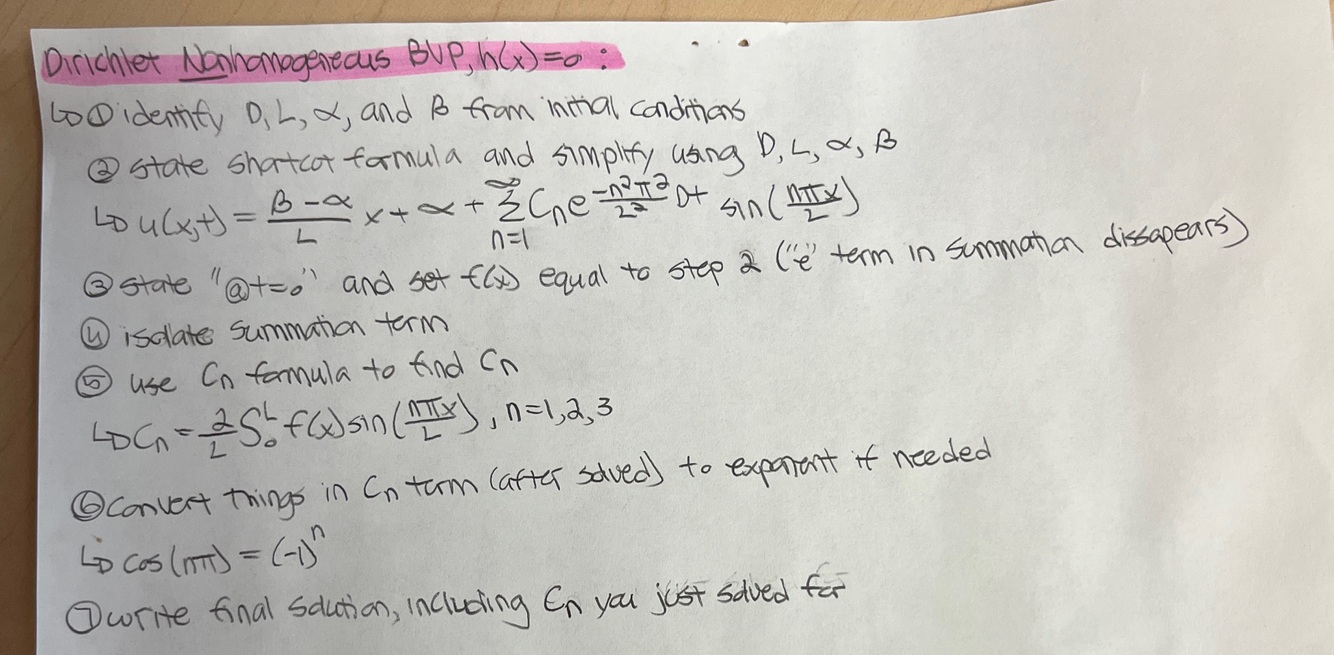 Dirichlet Nonhomogeneous BVP, h(x)=0 :
↳ ① identify D, L, α, and β from initial conditions
② state shortcut formula and simplify using D, L, α, β
↳ u(x,t) = \frac{β-α}{L} x + α + \sum_{n=1}^{∞} C_n e^{-\frac{n²π²}{L²} Dt} sin(\frac{nπx}{L})
③ state "@t=0" and set f(x) equal to step 2 ("e" term in summation dissapears)
④ isolate summation term
⑤ use Cn formula to find Cn
↳ C_n = \frac{2}{L} ∫_0^L f(x) sin(\frac{nπx}{L}), n=1,2,3
⑥ convert things in Cn term (after solved) to exponent if needed
↳ cos(nπ) = (-1)^n
⑦ write final solution, including Cn you just solved for